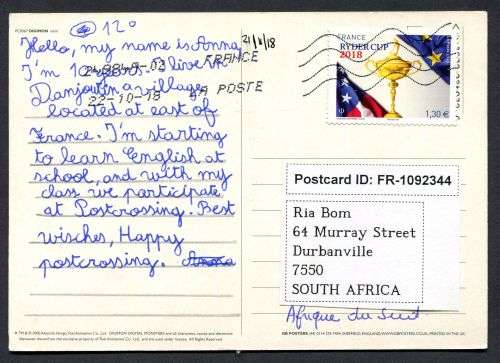 POSTCARD DIGIMON
12°
Hello, my name is Anna,
I'm 10 years. I live in
Danjoutin a village
located at east of
France. I'm starting
to learn English at
school, and with my
class we participate
at Postcrossing. Best
wisches, Happy
postcrossing. Anna
22-10-18
FRANCE
LA POSTE
FRANCE
RYDER CUP
2018
1,30 €
Postcard ID: FR-1092344
Ria Bom
64 Murray Street
Durbanville
7550
SOUTH AFRICA
Afrique du Sud